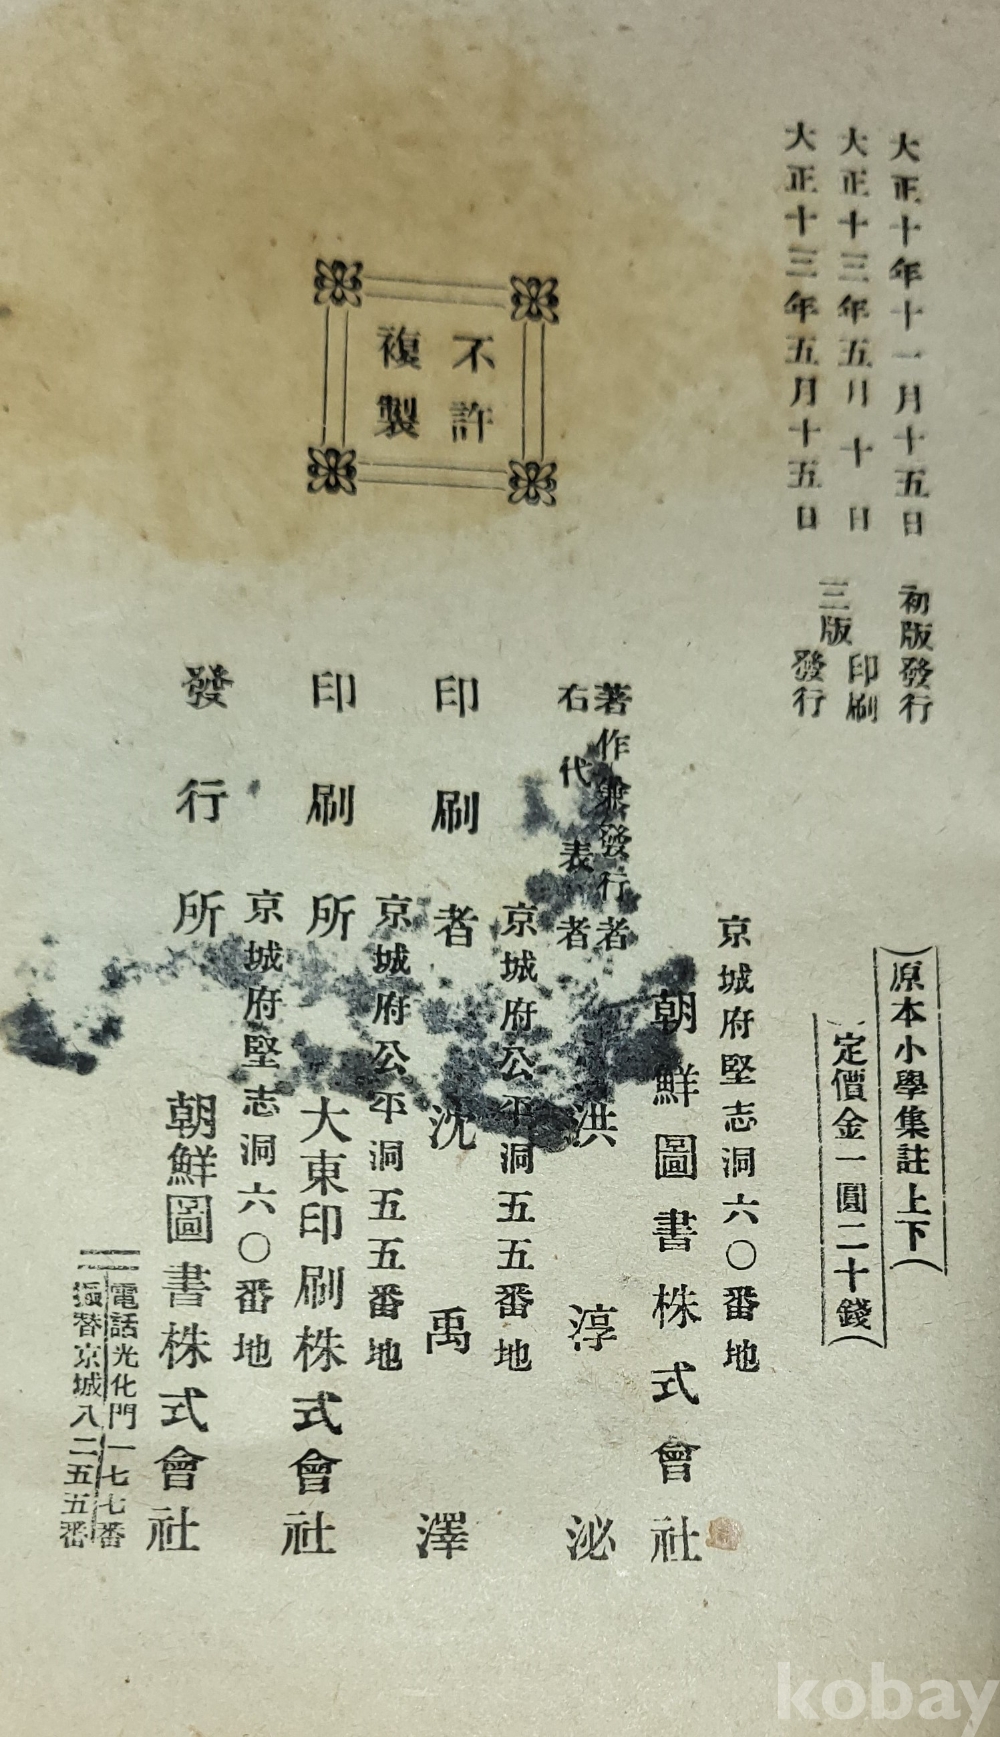 大正十年十一月十五日 初版發行
大正十三年五月十日 三版印刷
大正十三年五月十五日 發行
不許
複製
原本小學集註上下
定價金一圓二十錢
京城府堅志洞六〇番地
著作兼發行者 朝鮮圖書株式會社
右代表者 洪淳泌
京城府公平洞五五番地
印刷者 沈禹澤
京城府公平洞五五番地
印刷所 大東印刷株式會社
京城府堅志洞六〇番地
發行所 朝鮮圖書株式會社
電話光化門一七七番
振替京城八二五五番
kobay